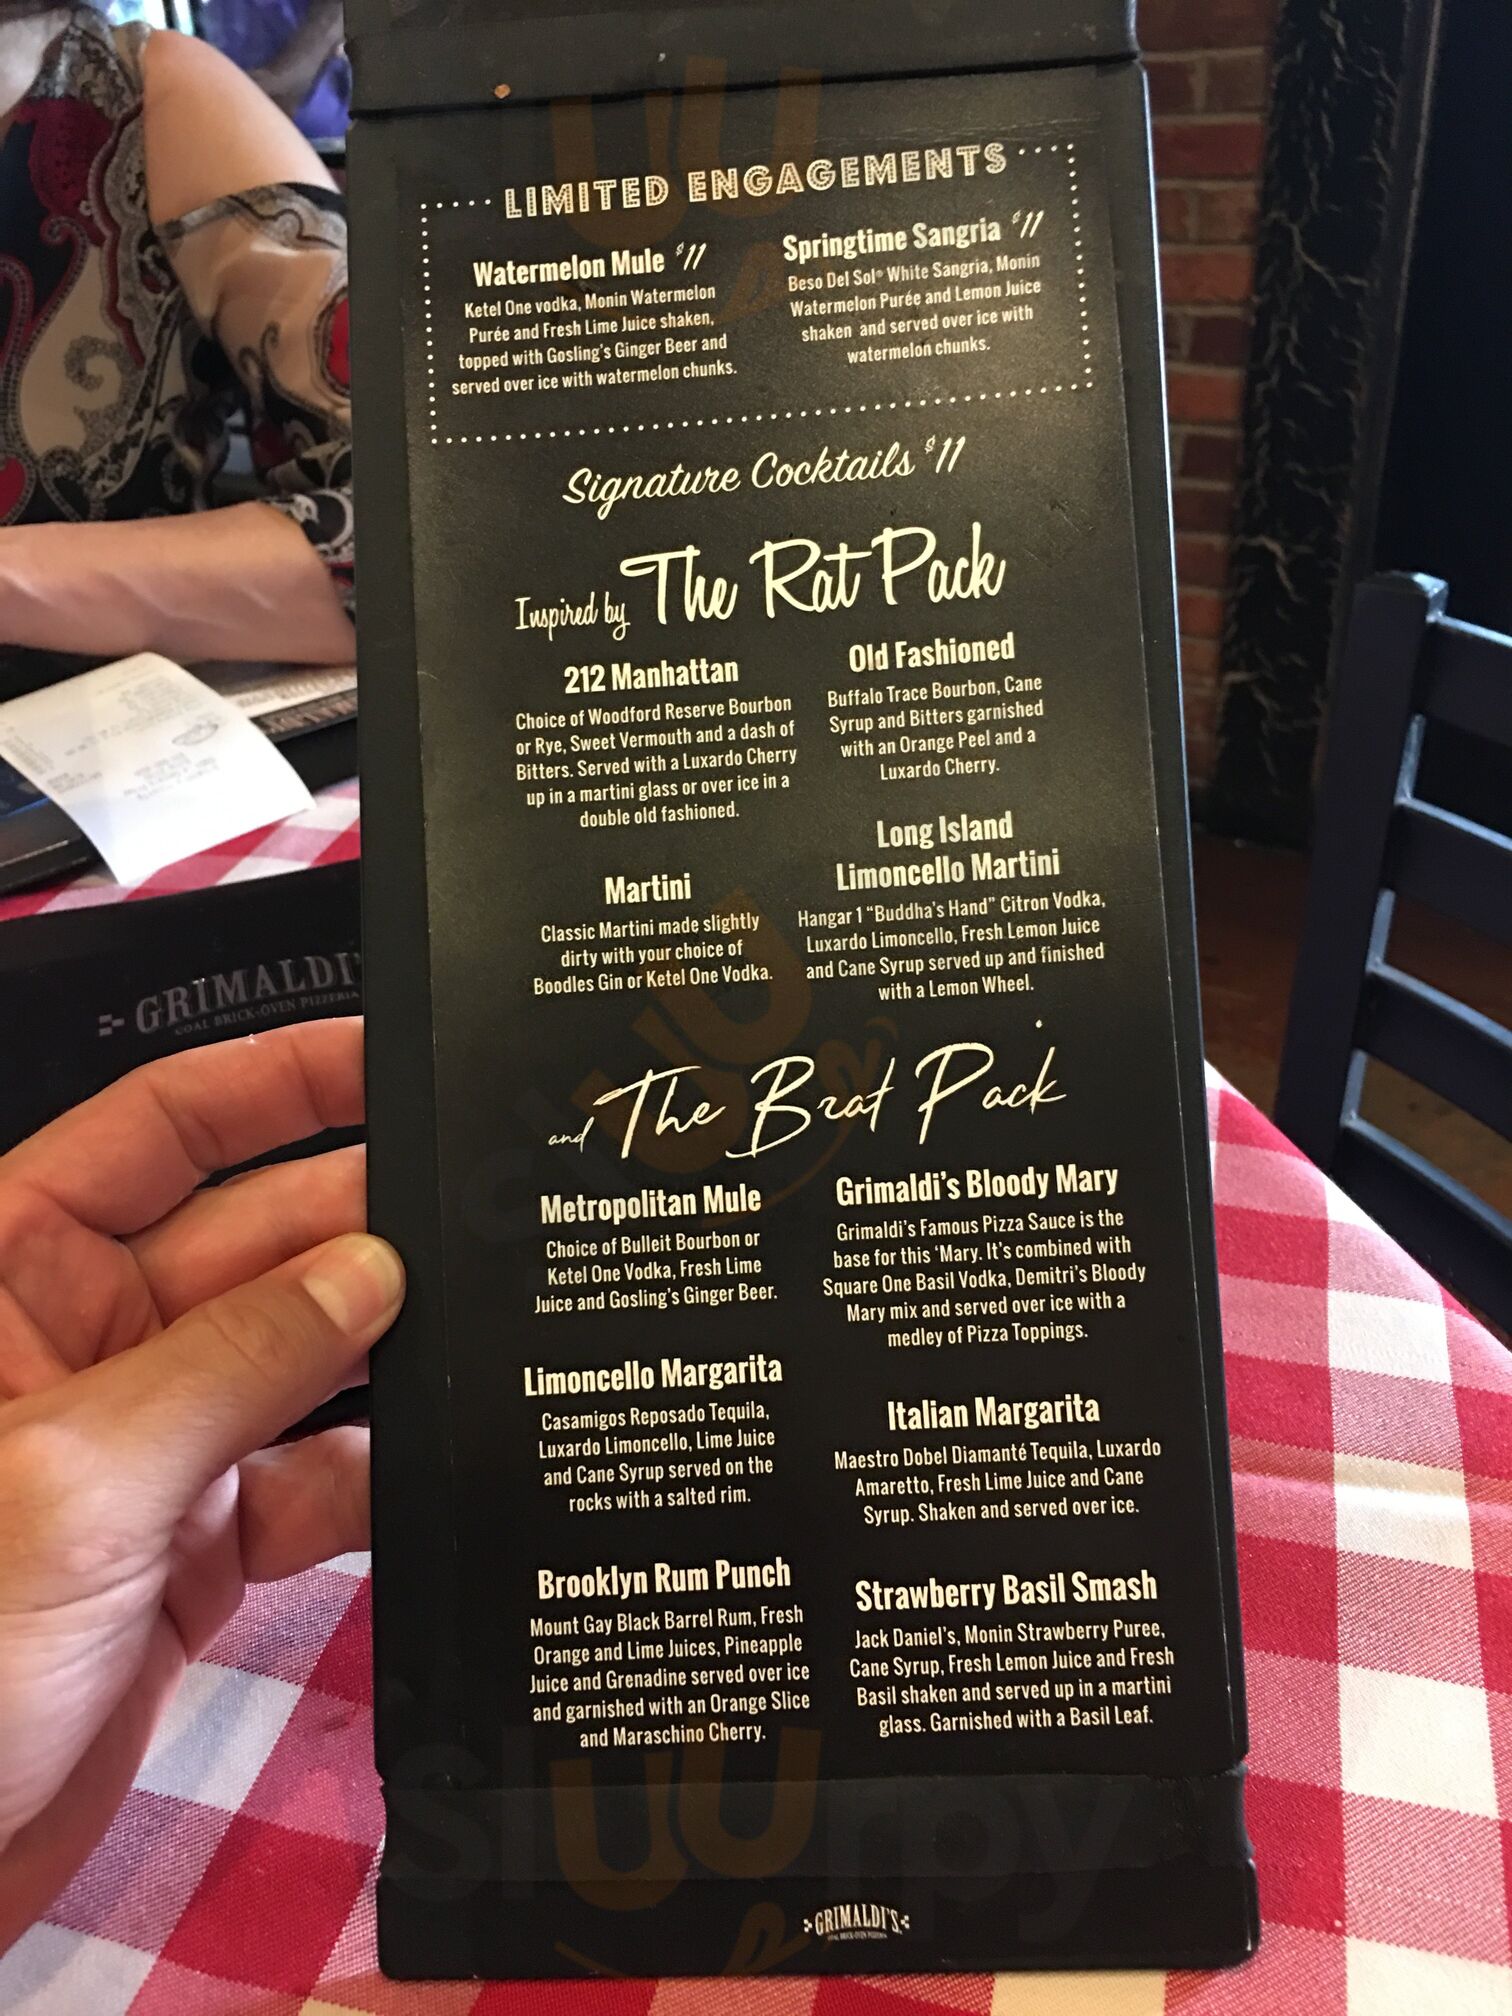 LIMITED ENGAGEMENTS
Watermelon Mule $11
Ketel One vodka, Monin Watermelon
Purée and Fresh Lime Juice shaken,
topped with Gosling's Ginger Beer and
served over ice with watermelon chunks.
Springtime Sangria $11
Beso Del Sol® White Sangria, Monin
Watermelon Purée and Lemon Juice
shaken and served over ice with
watermelon chunks.
Signature Cocktails $11
Inspired by The Rat Pack
212 Manhattan
Choice of Woodford Reserve Bourbon
or Rye, Sweet Vermouth and a dash of
Bitters. Served with a Luxardo Cherry
up in a martini glass or over ice in a
double old fashioned.
Old Fashioned
Buffalo Trace Bourbon, Cane
Syrup and Bitters garnished
with an Orange Peel and a
Luxardo Cherry.
Martini
Classic Martini made slightly
dirty with your choice of
Boodles Gin or Ketel One Vodka.
Long Island
Limoncello Martini
Hangar 1 “Buddha's Hand” Citron Vodka,
Luxardo Limoncello, Fresh Lemon Juice
and Cane Syrup served up and finished
with a Lemon Wheel.
and The Brat Pack
Metropolitan Mule
Choice of Bulleit Bourbon or
Ketel One Vodka, Fresh Lime
Juice and Gosling's Ginger Beer.
Grimaldi's Bloody Mary
Grimaldi's Famous Pizza Sauce is the
base for this ‘Mary. It's combined with
Square One Basil Vodka, Demitri's Bloody
Mary mix and served over ice with a
medley of Pizza Toppings.
Limoncello Margarita
Casamigos Reposado Tequila,
Luxardo Limoncello, Lime Juice
and Cane Syrup served on the
rocks with a salted rim.
Italian Margarita
Maestro Dobel Diamanté Tequila, Luxardo
Amaretto, Fresh Lime Juice and Cane
Syrup. Shaken and served over ice.
Brooklyn Rum Punch
Mount Gay Black Barrel Rum, Fresh
Orange and Lime Juices, Pineapple
Juice and Grenadine served over ice
and garnished with an Orange Slice
and Maraschino Cherry.
Strawberry Basil Smash
Jack Daniel's, Monin Strawberry Puree,
Cane Syrup, Fresh Lemon Juice and Fresh
Basil shaken and served up in a martini
glass. Garnished with a Basil Leaf.
GRIMALDI'S
COAL BRICK-OVEN PIZZERIA
GRIMALDI'
COAL BRICK-OVEN PIZZERIA
sluurpy